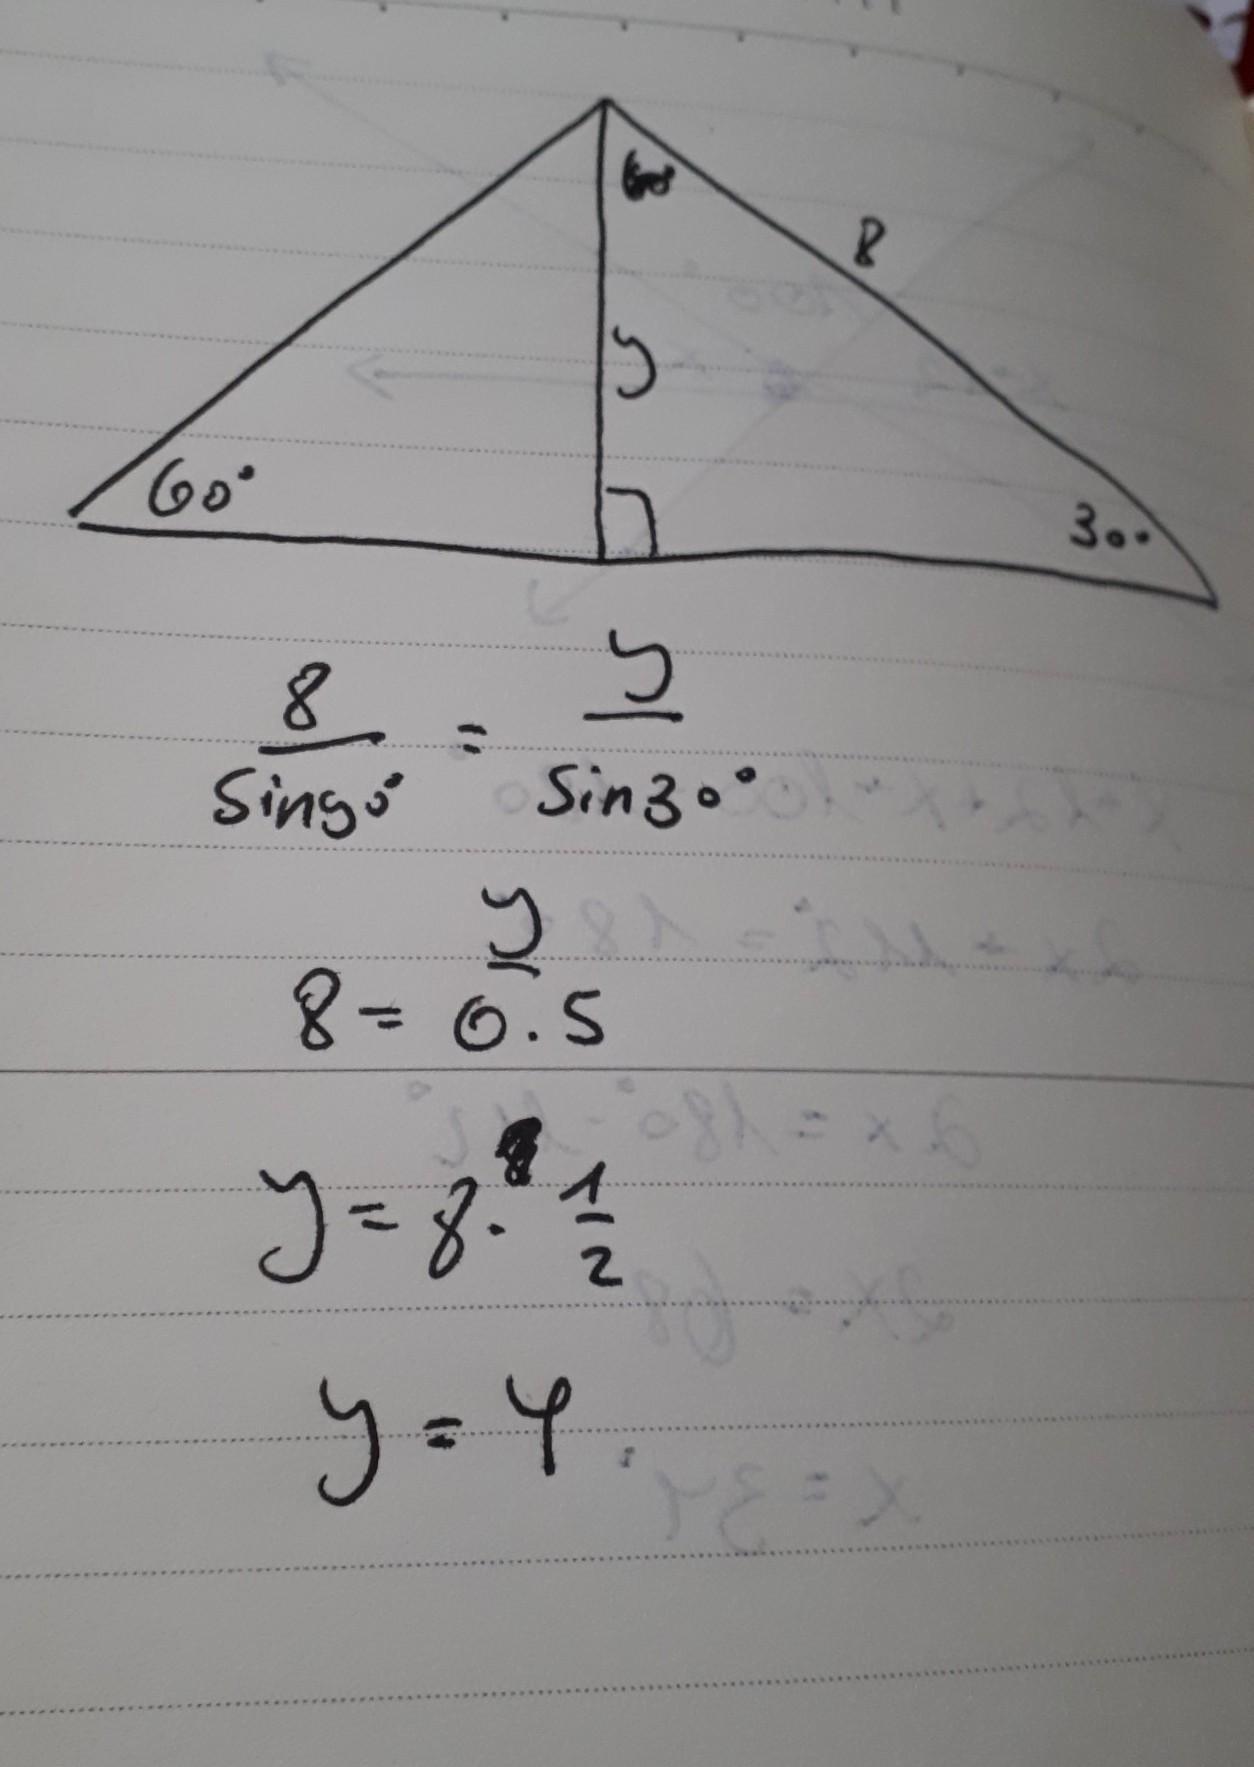 60°
8
y
60°
30°
8/sin90° = y/sin30°
8 = y/0.5
y = 8 · 1/2
y = 4